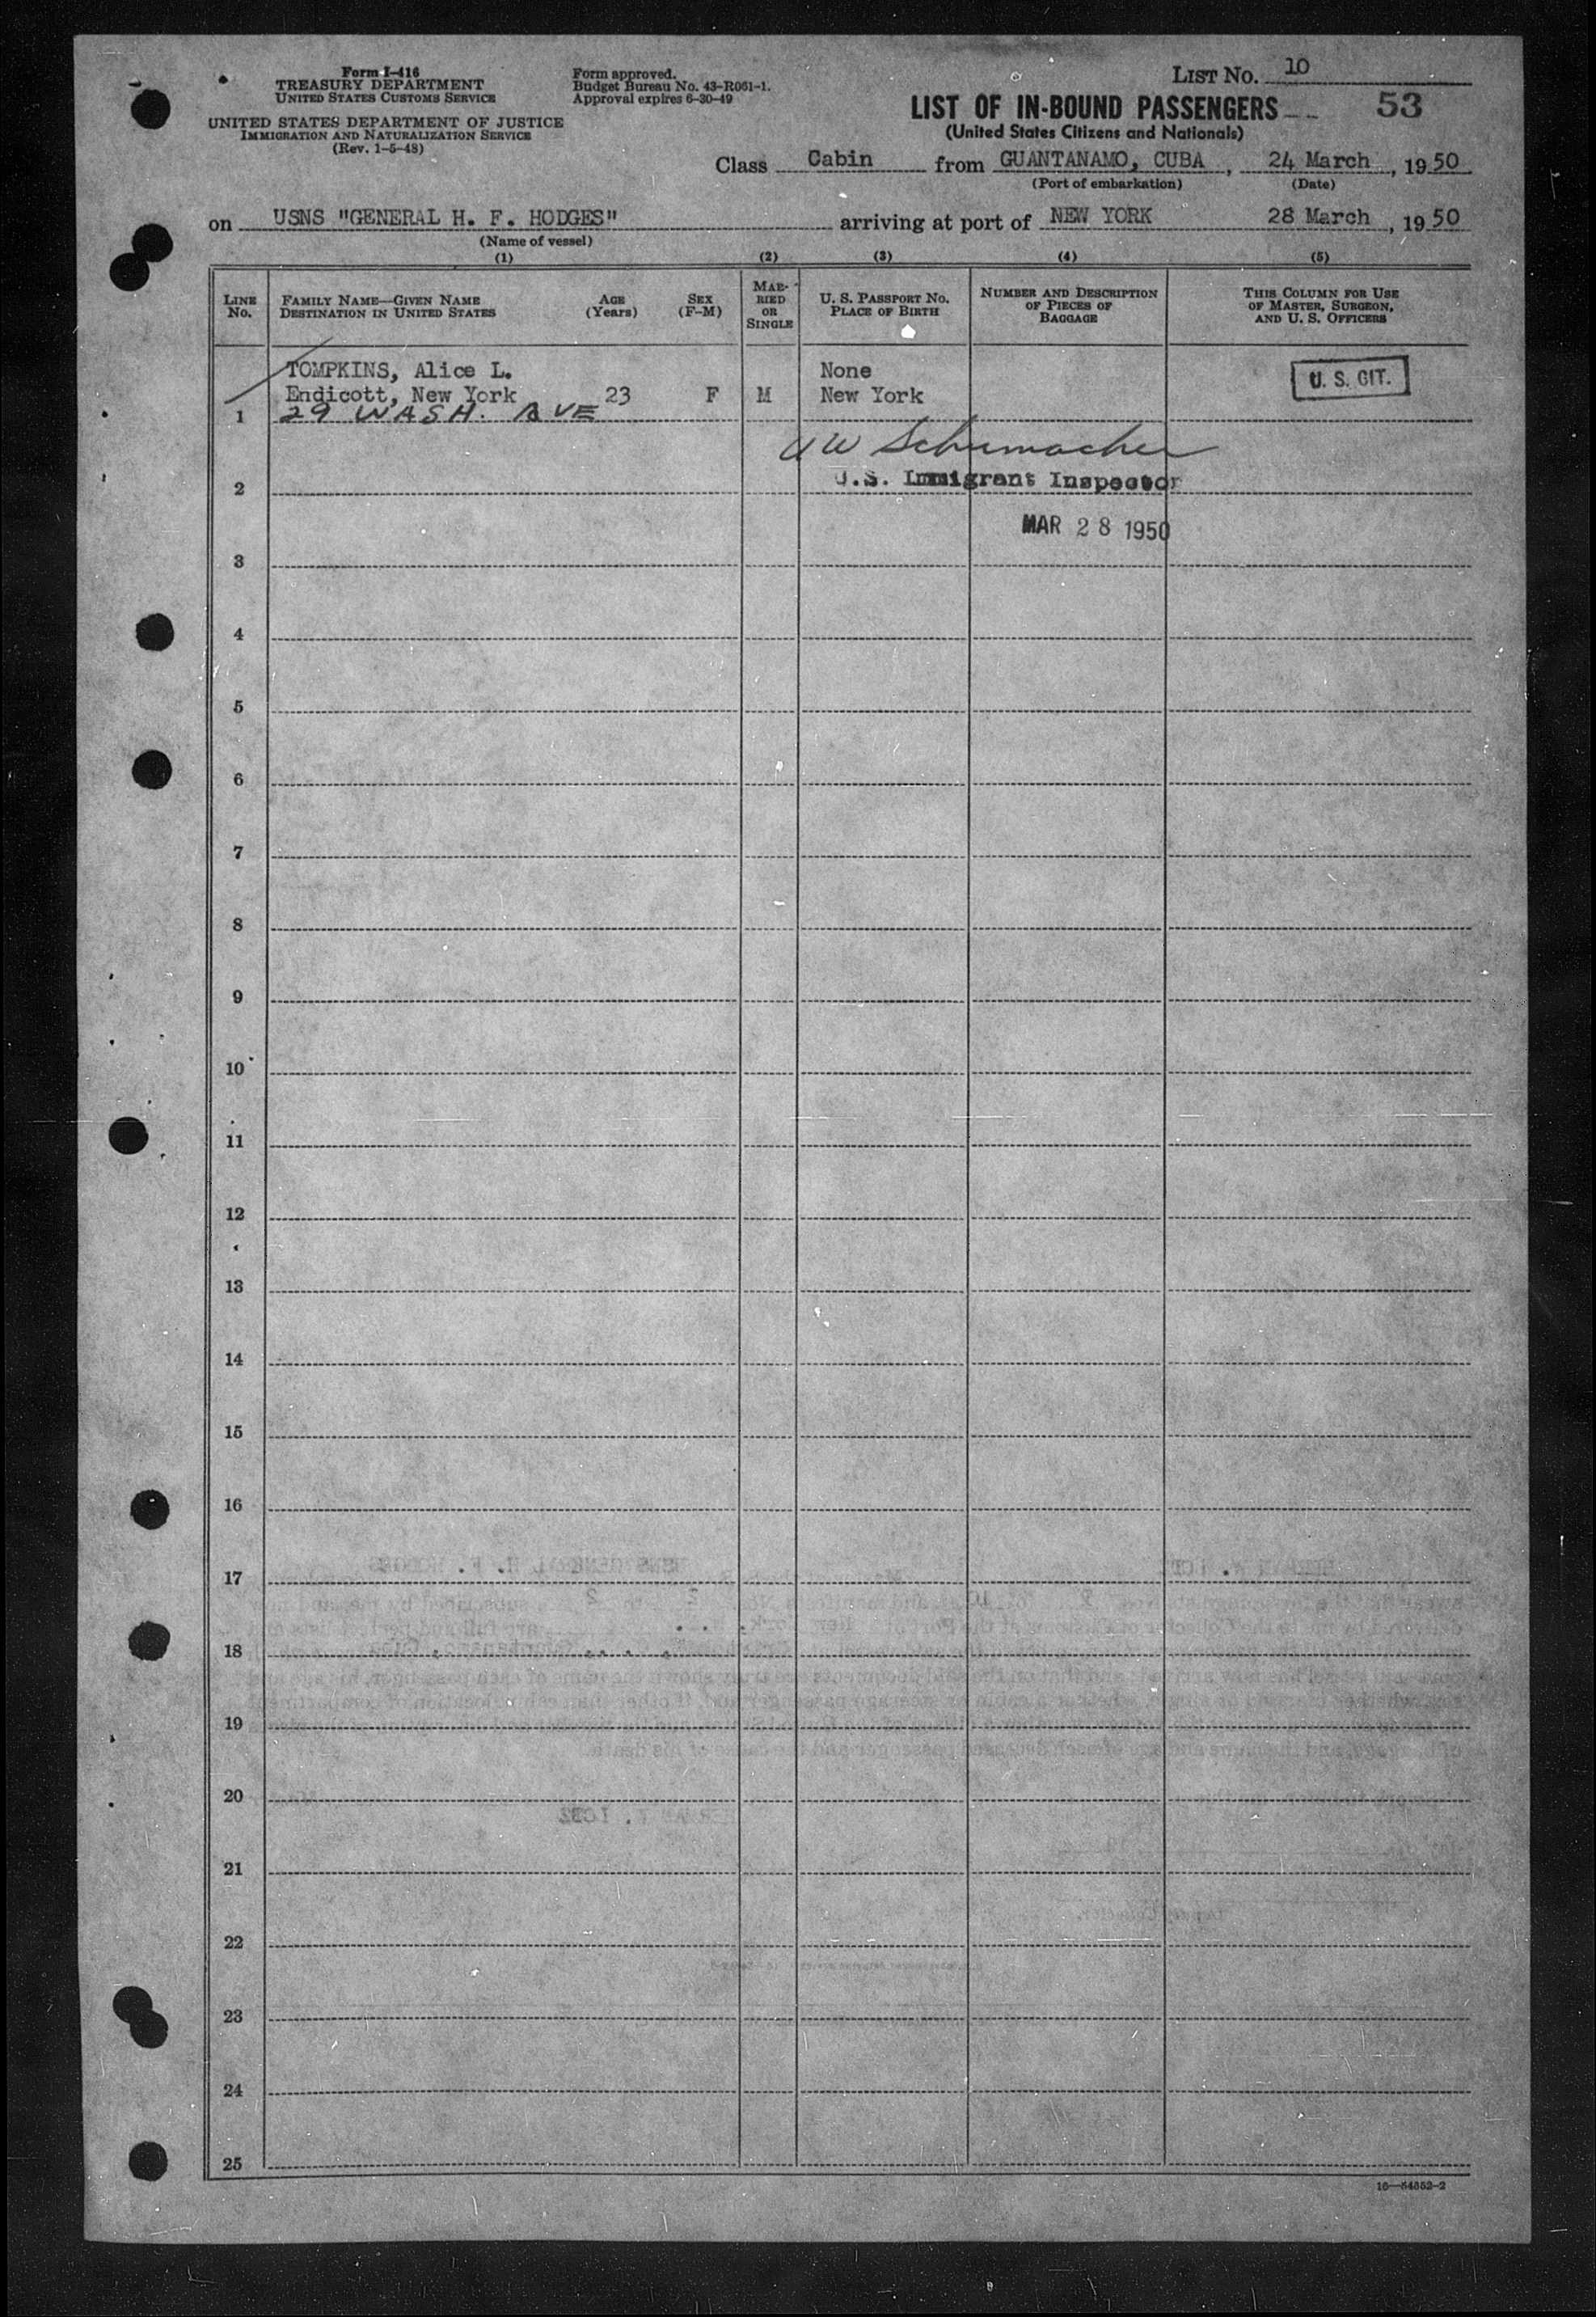 Form I-416
TREASURY DEPARTMENT
UNITED STATES CUSTOMS SERVICE
UNITED STATES DEPARTMENT OF JUSTICE
IMMIGRATION AND NATURALIZATION SERVICE
(Rev. 1-5-48)
Form approved.
Budget Bureau No. 43-R061-1.
Approval expires 6-30-49
LIST NO. 10
LIST OF IN-BOUND PASSENGERS 53
(United States Citizens and Nationals)
Class Cabin from GUANTANAMO, CUBA, 24 March, 1950
(Port of embarkation) (Date)
on USNS "GENERAL H. F. HODGES" arriving at port of NEW YORK 28 March, 1950
(Name of vessel)
(1) (2) (3) (4) (5)
LINE NO.
FAMILY NAME—GIVEN NAME
DESTINATION IN UNITED STATES
AGE (Years)
SEX (F-M)
MARRIED OR SINGLE
U. S. PASSPORT NO.
PLACE OF BIRTH
NUMBER AND DESCRIPTION OF PIECES OF BAGGAGE
THIS COLUMN FOR USE OF MASTER, SURGEON, AND U. S. OFFICERS
TOMPKINS, Alice L. None U. S. CIT.
Endicott, New York 23 F M New York
1 29 WASH. AVE
Schumacher
2 U.S. Immigrant Inspector
MAR 28 1950
3
4
5
6
7
8
9
10
11
12
13
14
15
16
17
18
19
20
21
22
23
24
25
16—54552-2